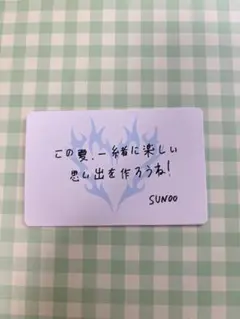 この夏、一緒に楽しい
思い出を作ろうね!
SUNOO